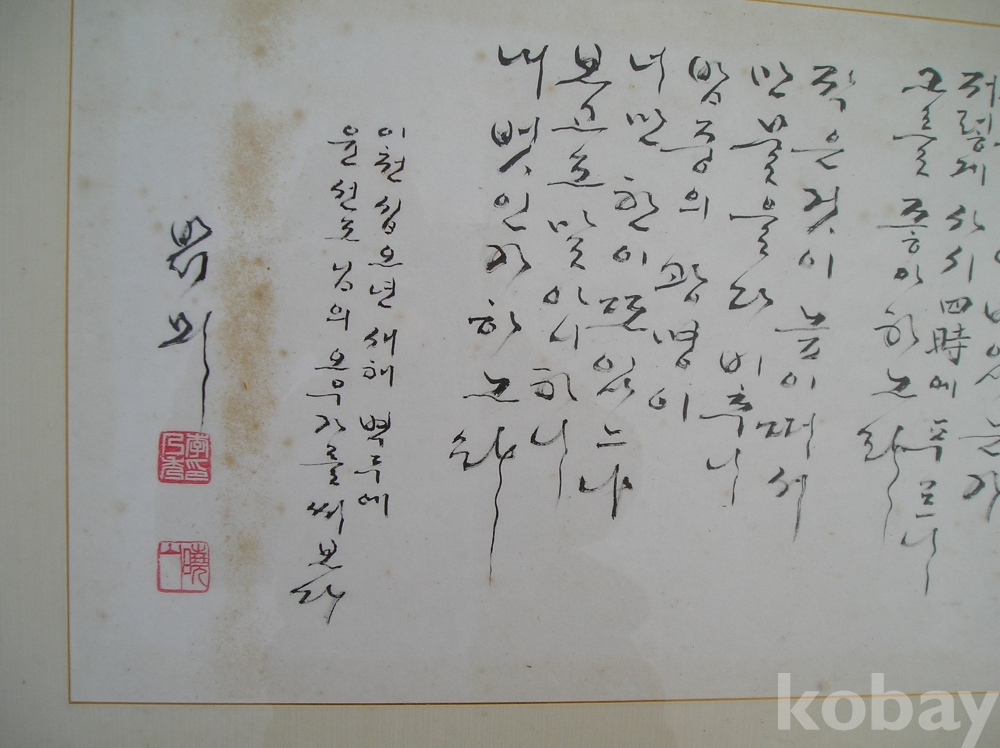 비었는가
저렇게 사시四時에 푸르니
그를 좋아 하노라
작은 것이 높이 떠서
만물을 다 비추니
밤중의 광명이
너만 한 이 또 있느냐
보고도 말 아니 하니
내 벗인가 하노라
이천십오년 새해 벽두에
윤선도님의 오우가를 써 보다
曉山
kobay